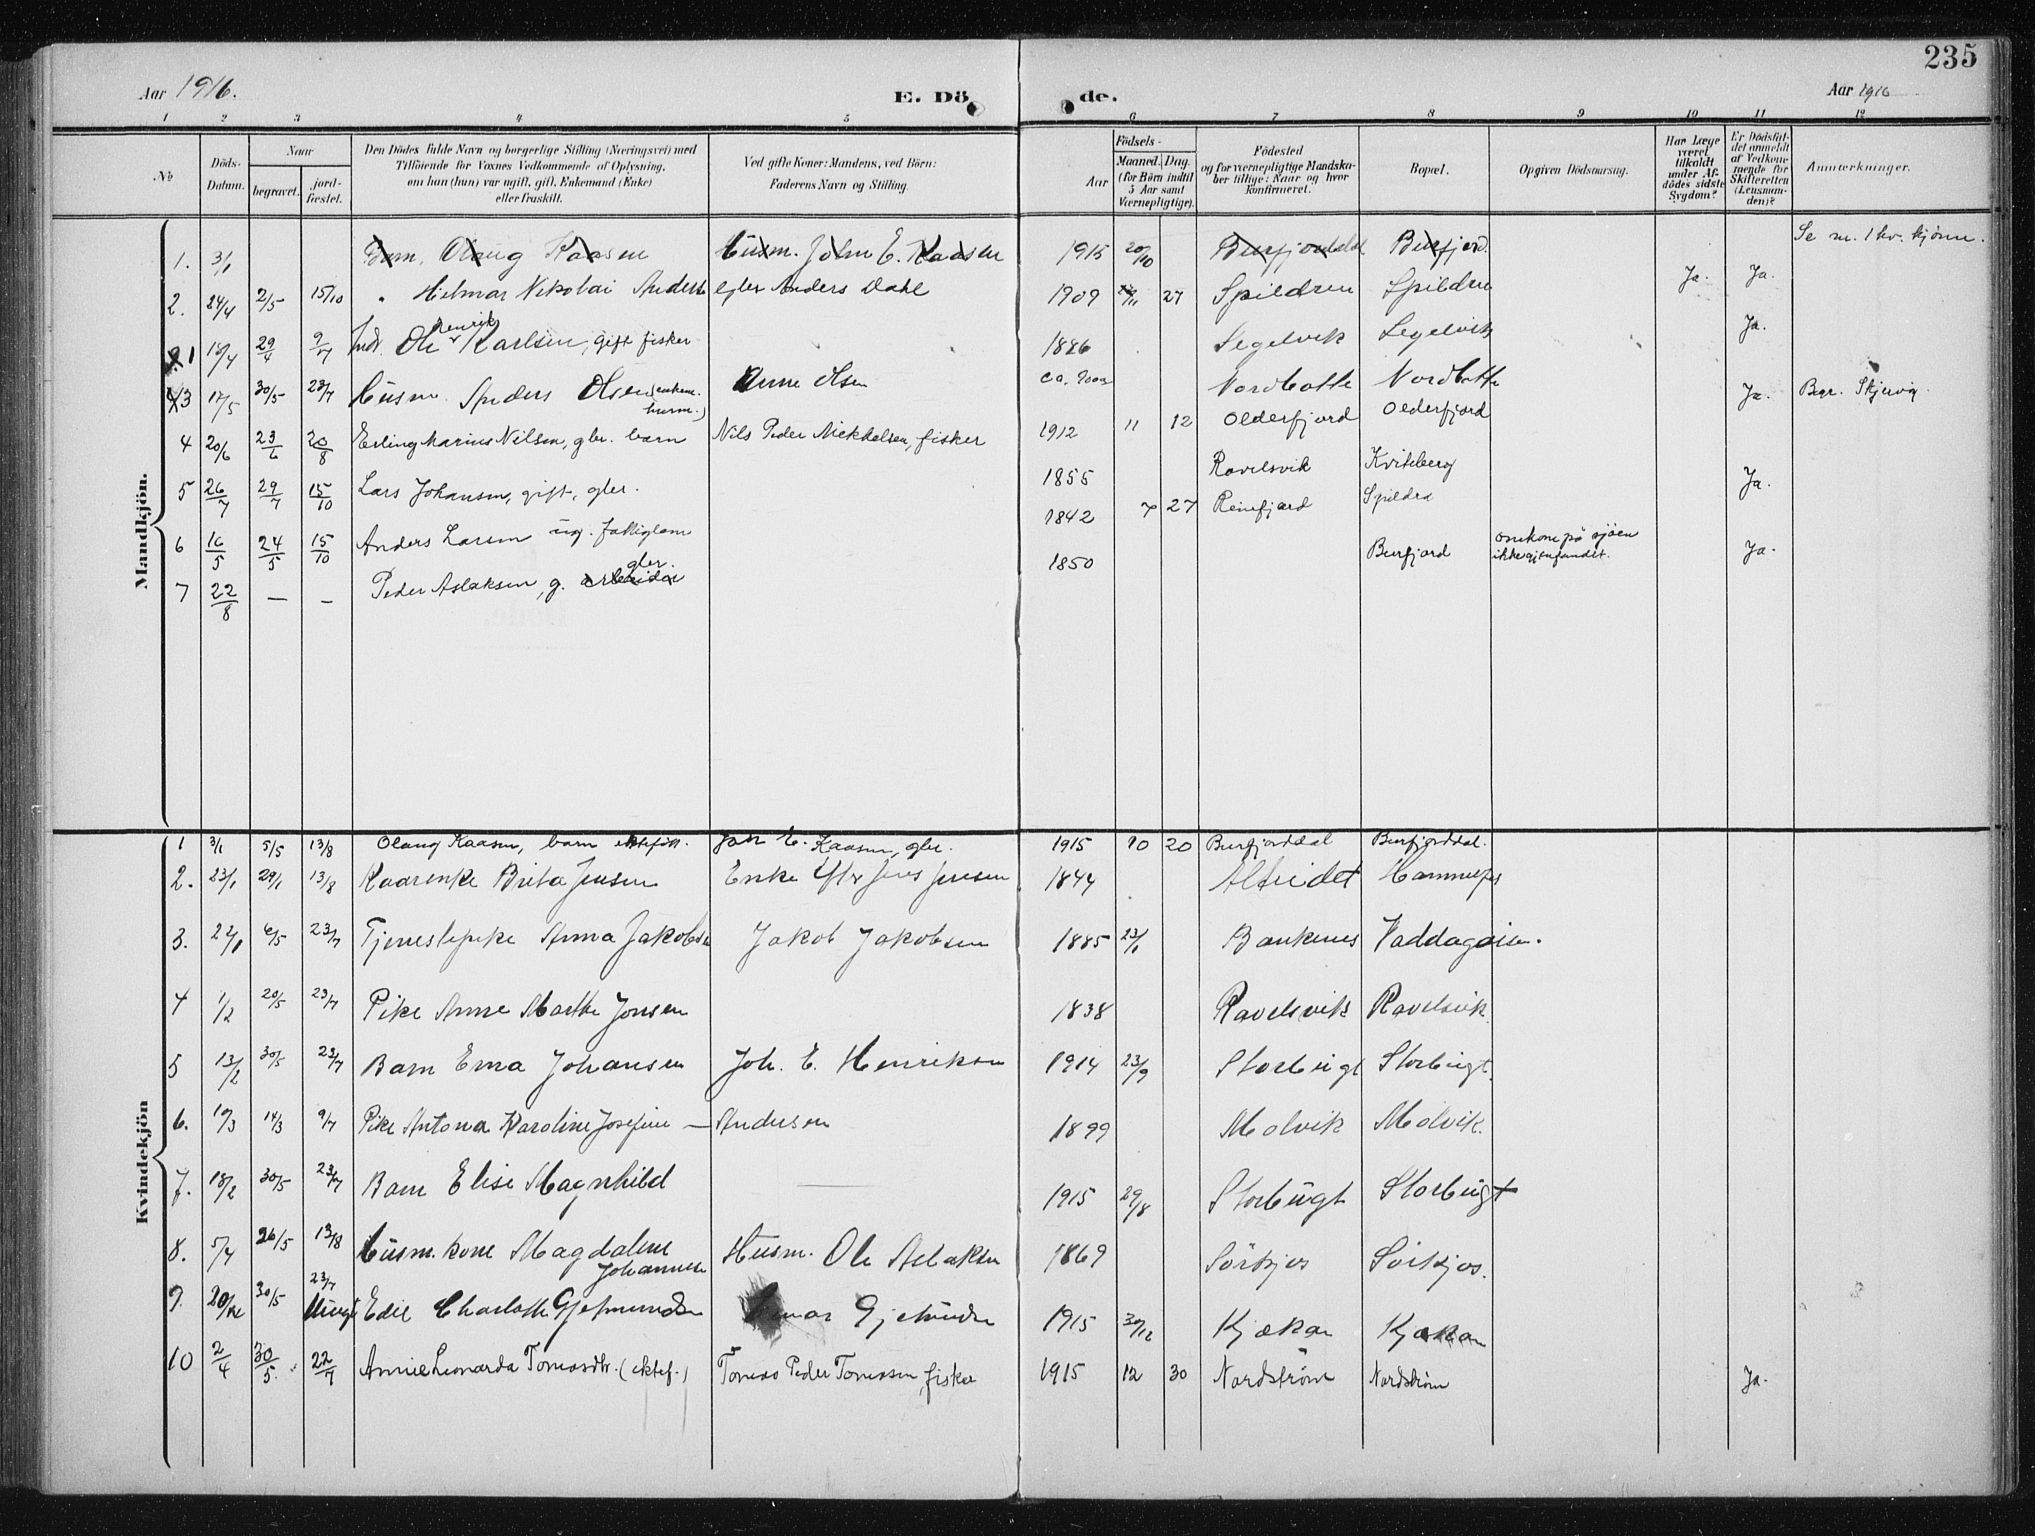 235
Aar 1916.
E. Dö
de.
Aar 1916
1 2 3 4 5 6 7 8 9 10 11 12
№
Döds-Datum.
Naar
begravet.
jord-fæstet.
Den Dödes fulde Navn og borgerlige Stilling (Næringsvei) med
Tilföiende for Voxnes Vedkommende af Oplysning,
om han (hun) var ugift, gift, Enkemand (Enke)
eller fraskilt.
Ved gifte Koner: Mandens, ved Börn:
Faderens Navn og Stilling.
Födsels-
Aar
Maaned. Dag.
(for Börn indtil
5 Aar samt
Værnepligtige).
Födested
og for værnepligtige Mandska-
ber tillige: Naar og hvor
konfirmeret.
Bopæl.
Opgiven Dödsaarsag.
Har Læge
været
tilkaldt
under Af-
dödes sidste
Sygdom?
Er Dödsfal-
det anmeldt
af Vedkom-
mende for
Skifteretten
(Lensman-
den)?
Anmerkninger.
Mandkjön.
1. 3/1 Barn, Olaug Kaasen Husm. John E. Kaasen 1915 20/10 Burfjorddal Burfjord. Se nr. 1 kv. kjønn.
2. 24/4 2/5 15/10 " Hilmar Nikolai Anders Dahl 1909 27 Spildren Spildren Ja. Ja.
1 18/4 29/4 9/7 Indr. Ole Henrik Karlsen, gift fisker 1886 Segelvik Segelvik Ja.
3 17/5 30/5 23/7 Husm. Anders Olsen Anne Olsen ca. Nordbotte Nordbotte Ja. Begr. Skjervøy
4 20/6 23/6 20/8 Erling Marius Nilsen, gbr. barn Nils Peder Mickkelsen, fisker 1912 11 12 Olderfjord Olderfjord
5 26/7 29/7 15/10 Lars Johansen, gift, gbr. 1855 Ravelsvik Kviteberg Ja.
6 16/5 24/5 15/10 Anders Larsen ug. fattiglem 1842 7 27 Reinfjord Spildra
7 22/8 — — Peder Aslaksen, g. arbeider gbr. 1850 Burfjord omkom på sjøen ikke gjenfundet. Ja.
Kvindekjön
1 3/1 5/5 13/8 Olaug Kaasen, barn ektefød. John E. Kaasen, gbr. 1915 10 20 Burfjorddal Burfjorddal.
2. 23/1 29/1 13/8 Kaarenke Brita Jensen Enke efter Jens Jensen 1844 Alteidet Hamnnes
3. 22/1 6/5 23/7 Tjenestepike Anna Jakobsen Jakob Jakobsen 1885 23/1 Baukenes Vaddagaisen.
4 1/2 20/5 23/7 Pike Anne Marthe Jonsen 1838 Ravelsvik Ravelsvik.
5 13/2 30/5 23/7 Barn Erna Johansen Joh. E. Henriksen 1914 23/9 Storbugt Storbugt.
6. 10/3 14/3 9/7 Pike Antona Karoline Josefine — Andersen 1899 Molvik Molvik.
7. 18/2 30/5 23/7 Barn Elise Magnhild — 1915 29/8 Storbugt Storbugt
8. 5/4 26/5 13/8 Husm. kone Magdalene Johannesen Husm. Ole Aslaksen 1869 Sörkjos Sörkjos.
9. 20/12 30/5 23/7 Edil Charlotte Gjetmundsen Gjetmundsen 1915 30/12 Kjækan Kjækan
10 2/4 30/5. 22/7 Annie Leonarda Tomasdtr. (ektef.) Tomas Peder Tomassen, fisker 1915 12 30 Nordstrøm Nordstrøm Ja.